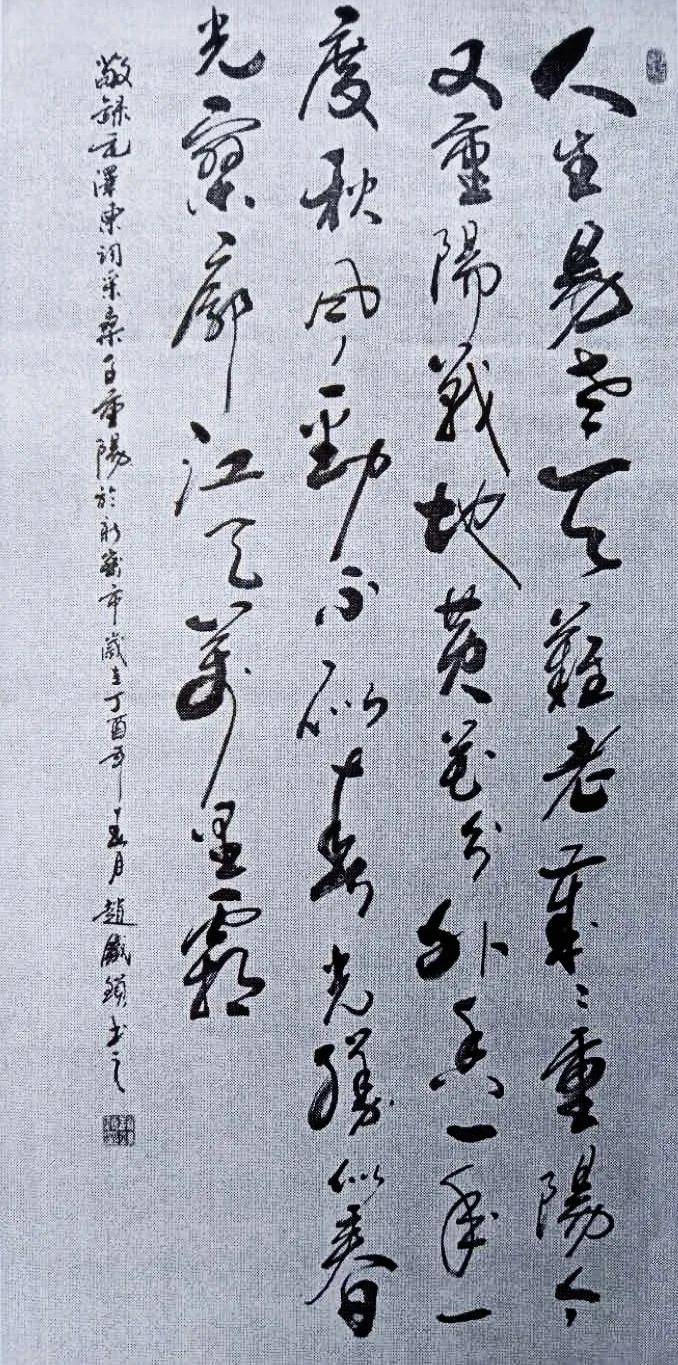 人生易老天難老歲〻重陽今
又重陽戰地黄花分外香一年一
度秋風勁不似春光勝似春
光寥廓江天萬里霜
敬録毛澤東詞采桑子重陽於新密市歲在丁酉年月趙鎖書之